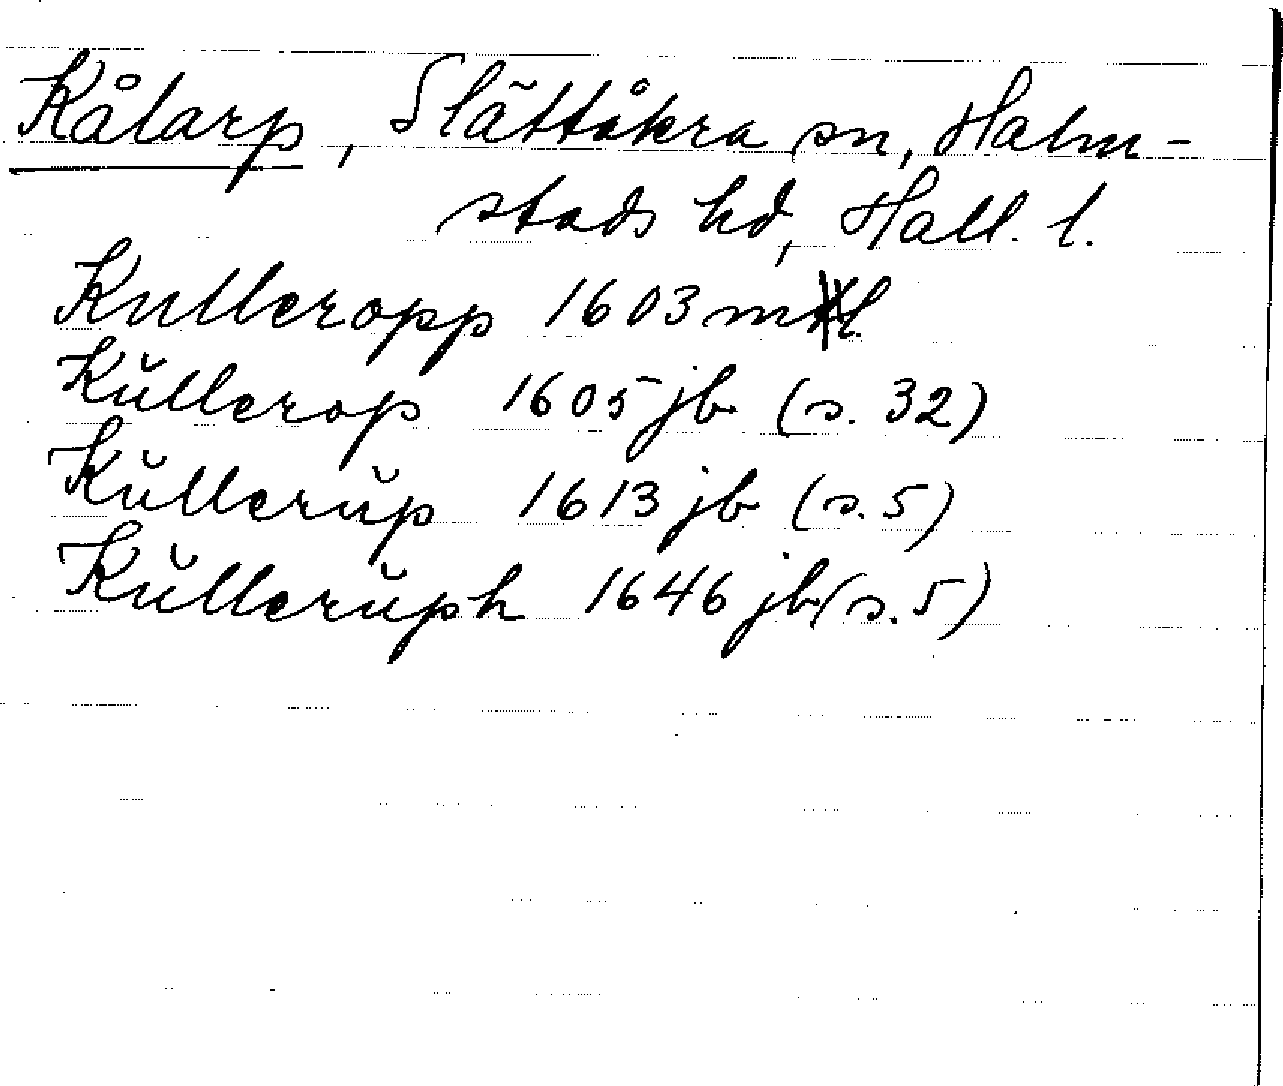 Kålarp, Slättåkra sn, Halm-
stads hd, Hall. l.
Kulleropp 1603 ml.
Kŭllerop 1605 jb (s. 32)
Kŭllerŭp 1613 jb (s. 5)
Kŭllerŭph 1646 jb (s. 5)